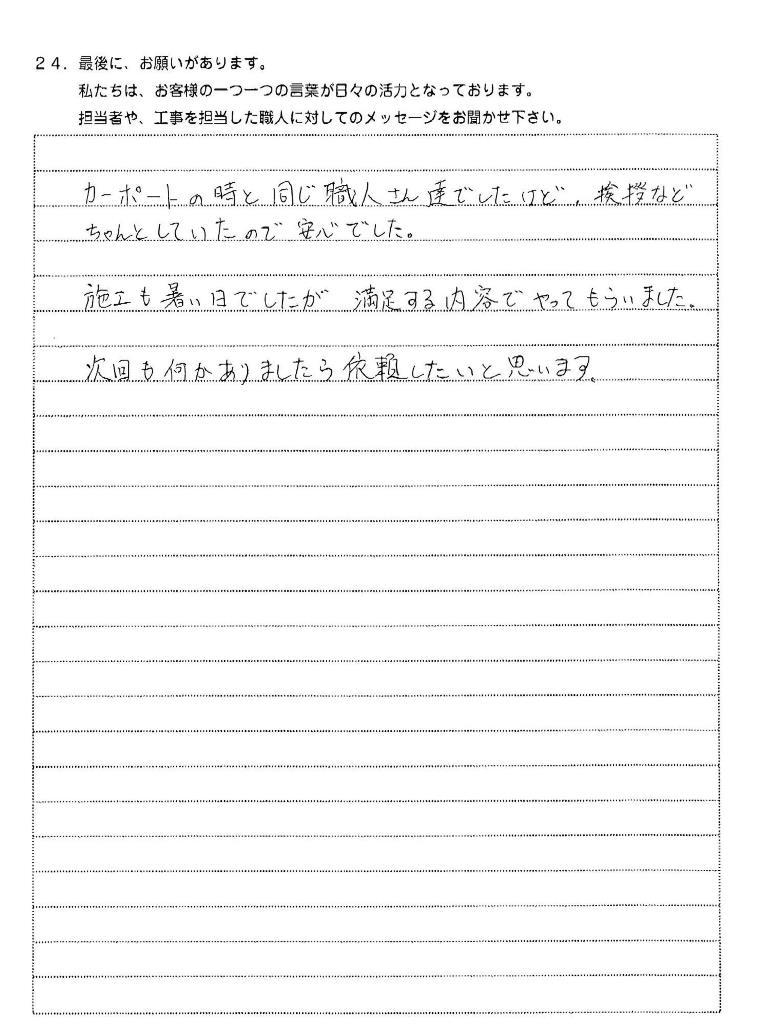 24．最後に、お願いがあります。
私たちは、お客様の一つ一つの言葉が日々の活力となっております。
担当者や、工事を担当した職人に対してのメッセージをお聞かせ下さい。
カーポートの時と同じ職人さん達でしたけど、挨拶など
ちゃんとしていたので安心でした。
施工も暑い日でしたが 満足する内容でやってもらいました。
次回も何かありましたら依頼したいと思います。